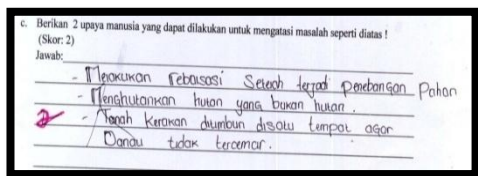 c. Berikan 2 upaya manusia yang dapat dilakukan untuk mengatasi masalah seperti diatas !
(Skor: 2)
Jawab:
- Melakukan rebolsasi Setelah terjadi Penebangan Pohon
- Menghutankan hutan yang bukan hutan.
2 - Tanah Kerakan ditumbun disatu tempat agar
Danau tidak tercemar.